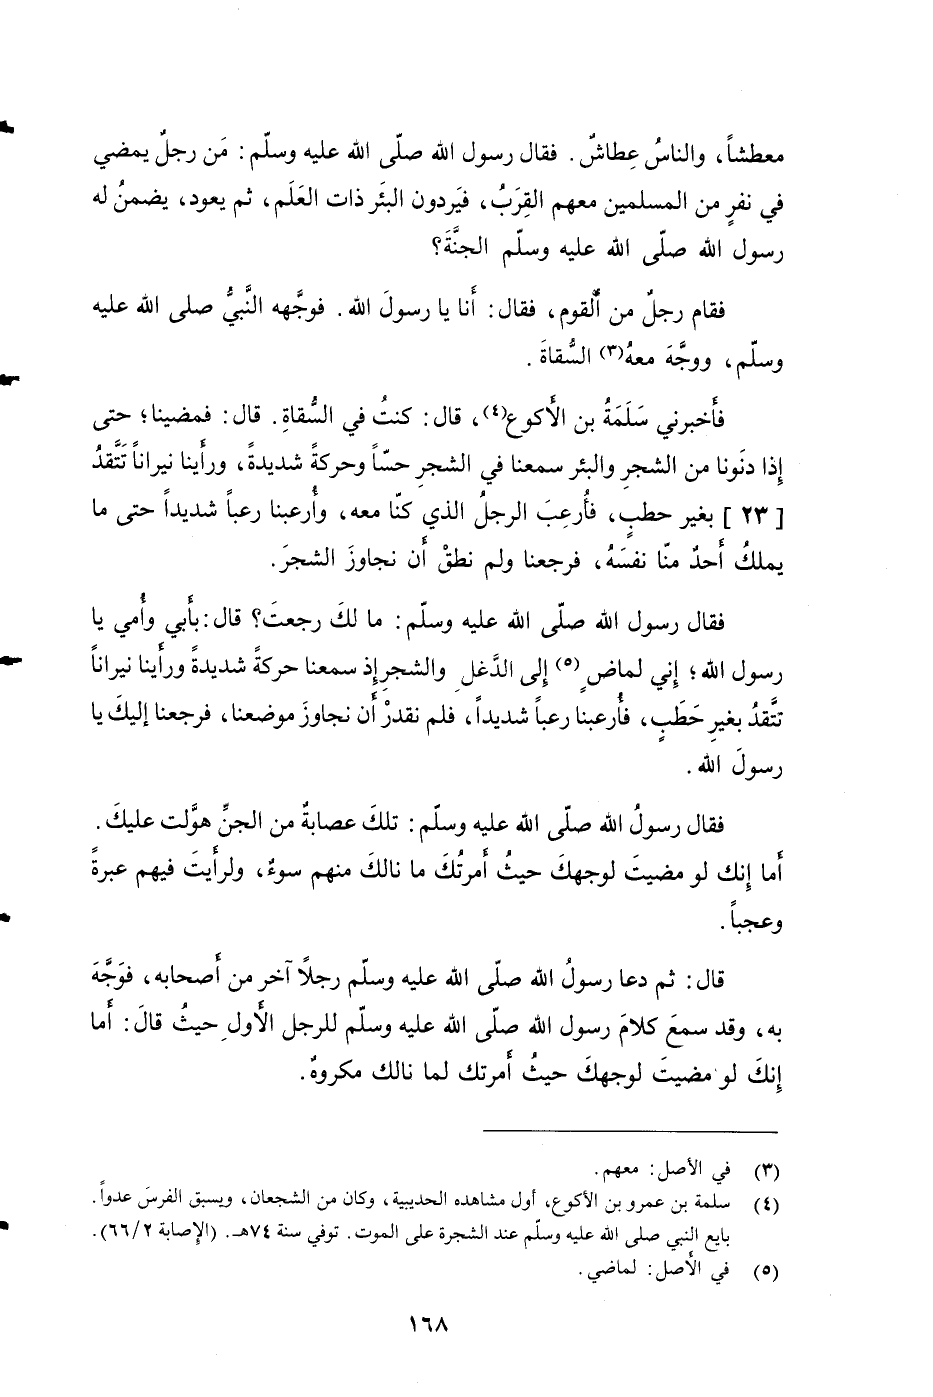 معطشاً، والناسُ عِطاشٌ. فقال رسول الله صلّى الله عليه وسلّم: مَن رجلٌ يمضي
في نفرٍ من المسلمين معهم القِرَبُ، فيَردون البئَر ذات العَلَم، ثم يعود، يضمنُ له
رسول الله صلّى الله عليه وسلّم الجنَّةَ؟
فقام رجلٌ من ألقوم، فقال: أَنا يا رسولَ الله. فوجَّهه النَّبيُّ صلى الله عليه
وسلّم، ووجَّهَ معهُ(٣) السُّقاةَ.
فأَخبرني سَلَمَةُ بن الأَكوع(٤)، قال: كنتُ في السُّقاةِ. قال: فمضينا؛ حتى
إذا دنَونا من الشجرِ والبئر سمعنا في الشجرِ حسّاً وحركةً شديدةً، ورأَينا نيراناً تَتَّقدُ
[ ٢٣ ] بغير حطبٍ، فأُرعِبَ الرجلُ الذي كنّا معه، وأُرعبنا رعباً شديداً حتى ما
يملكُ أَحدٌ منّا نفسَهُ، فرجعنا ولم نطقْ أَن نجاوزَ الشجرَ.
فقال رسول الله صلّى الله عليه وسلّم: ما لكَ رجعتَ؟ قال: بأَبي وأُمي يا
رسول الله؛ إِني لماضٍ(٥) إلى الدَّغلِ والشجرِ إذ سمعنا حركةً شديدةً ورأَينا نيراناً
تتَّقدُ بغيرِ حَطَبٍ، فأُرعبنا رعباً شديداً، فلم نقدرْ أَن نجاوزَ موضعنا، فرجعنا إليكَ يا
رسولَ الله.
فقال رسولُ الله صلّى الله عليه وسلّم: تلكَ عصابةٌ من الجنِّ هوَّلت عليكَ.
أَما إنك لو مضيتَ لوجهكَ حيثُ أَمرتُكَ ما نالكَ منهم سوءٌ، ولرأَيتَ فيهم عبرةً
وعجباً.
قال: ثم دعا رسولُ الله صلّى الله عليه وسلّم رجلًا آخر من أَصحابه، فوَجَّهَ
به، وقد سمعَ كلامَ رسول الله صلّى الله عليه وسلّم للرجل الأَولِ حيثُ قالَ: أَما
إنكَ لو مضيتَ لوجهكَ حيثُ أَمرتك لما نالك مكروهٌ.
(٣) في الأصل: معهم.
(٤) سلمة بن عمرو بن الأكوع، أول مشاهده الحديبية، وكان من الشجعان، ويسبق الفرسَ عدواً.
بايع النبي صلى الله عليه وسلّم عند الشجرة على الموت. توفي سنة ٧٤هـ. (الإصابة ٦٦/٢).
(٥) في الأَصل: لماضي.
١٦٨